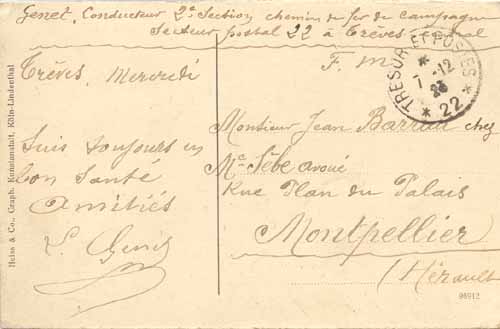 Genet, Conducteur 2e Section, chemins de fer de campagne
Secteur postal 22 à Trèves central
F. M
TRESOR ET POSTES
* 22 *
7 -12
23
Trèves, Mercredi
Suis toujours en
bon santé
Amitiés
L. Genet
Monsieur Jean Barrau chez
Me Sèbe avoué
Rue Plan du Palais
Montpellier
(Hérault)
Heiss & Co., Graph. Kunstanstalt, Köln-Lindenthal
96912